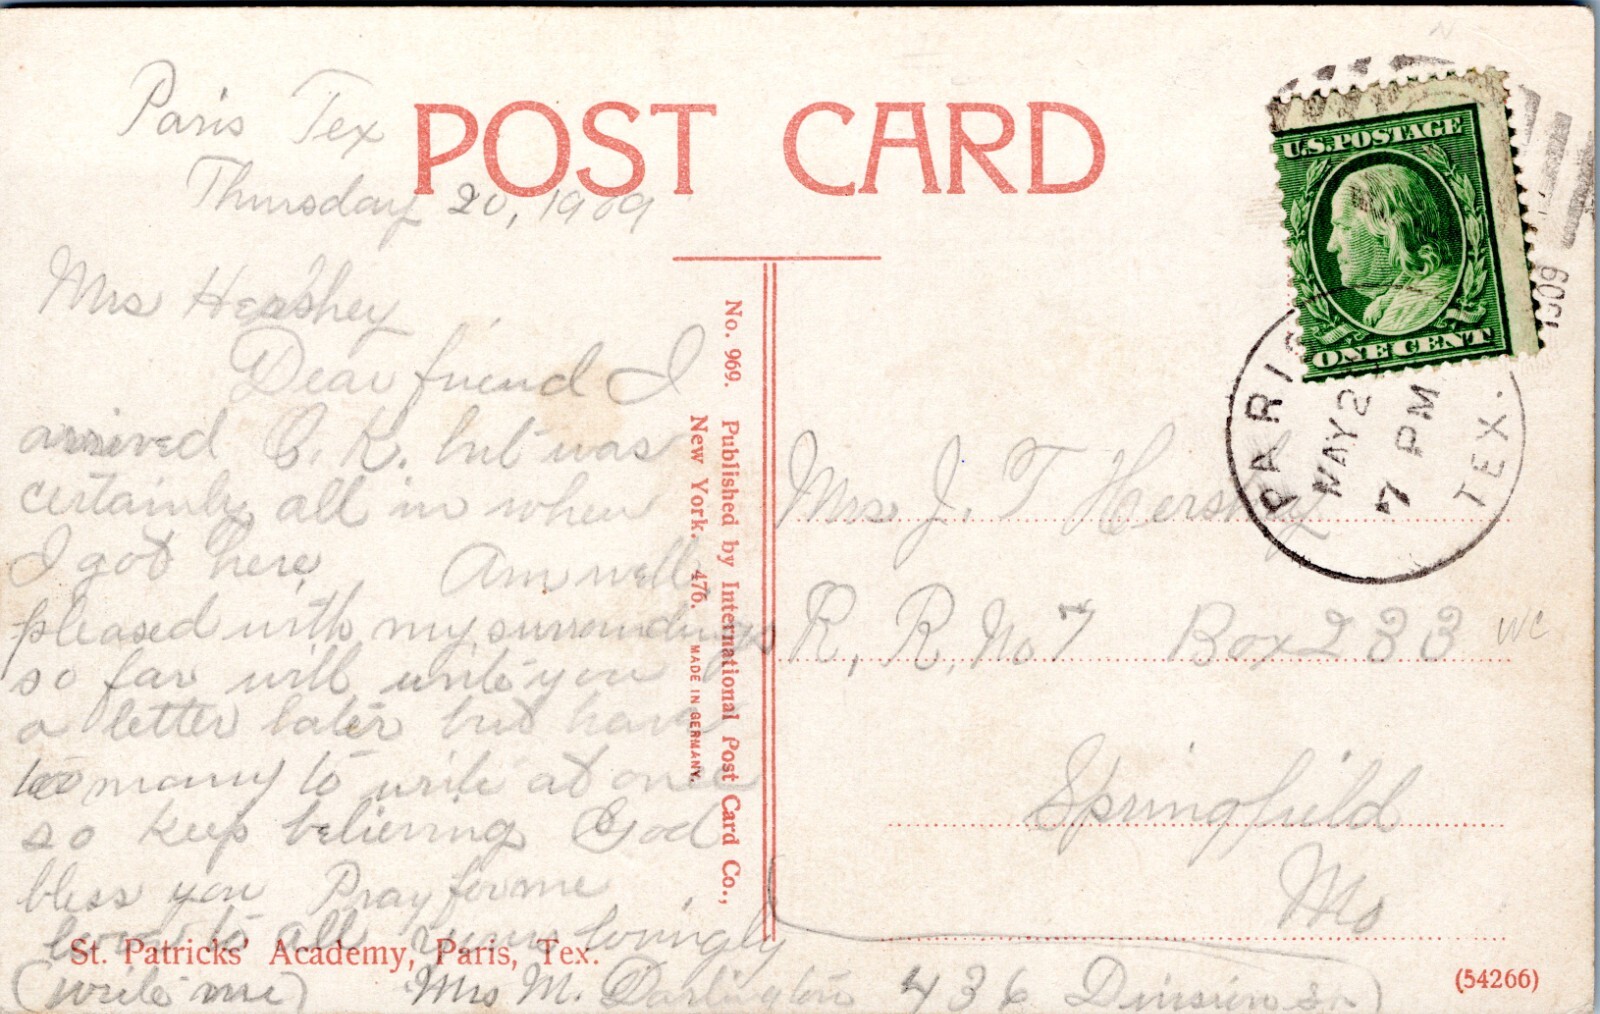 POST CARD
Paris Tex
Thursday 20, 1909
Mrs Heashey
Dear friend I
arrived O. K. but was
certainly all in when
I got here Am well
pleased with my surroundings
so far will write you
a letter later but have
too many to write at once
so keep believing God
bless you Pray for me
love to all yours lovingly
(write me) Mrs M. Darlington 436 Division St)
St. Patricks' Academy, Paris, Tex.
No. 969. Published by International Post Card Co.,
New York. 476. MADE IN GERMANY.
U.S. POSTAGE
ONE CENT
PARIS
MAY 2
7 PM
TEX.
1909
Mrs J. T Hershey
R, R, No 7 Box 233
WC
Springfield
Mo
(54266)